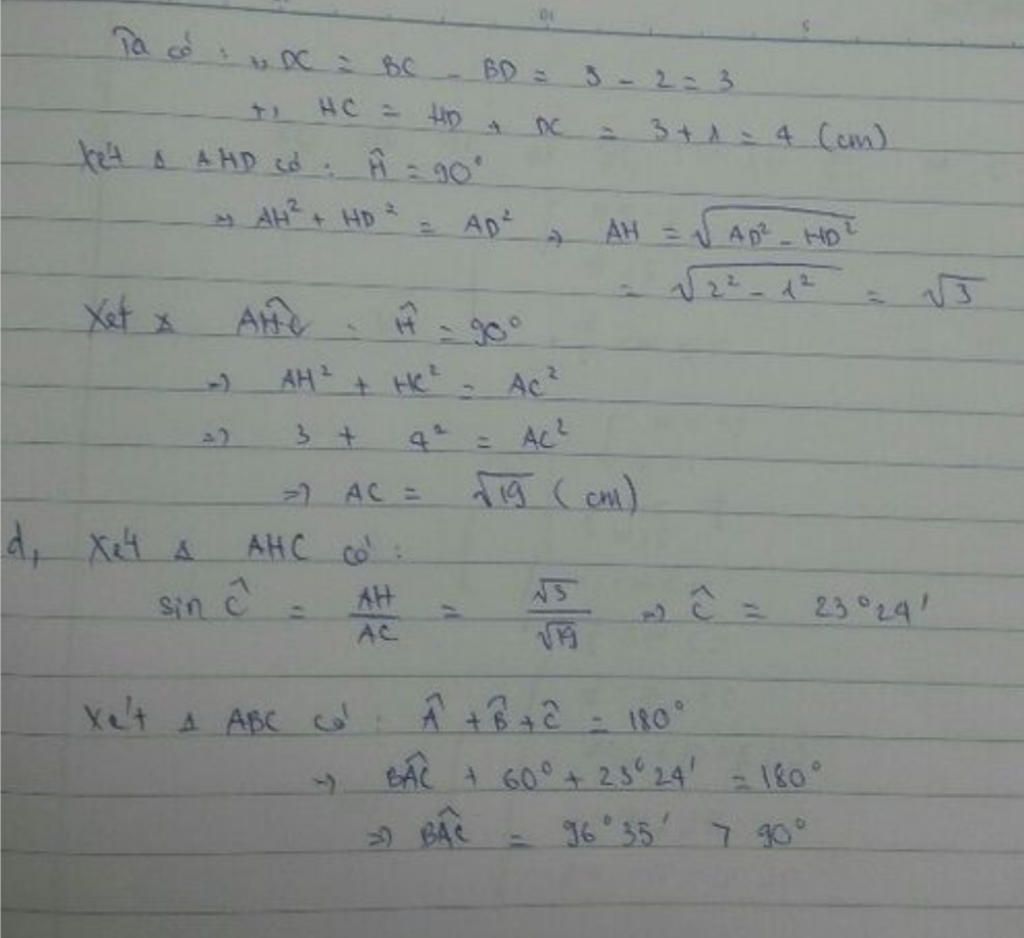 Ta có : +, DC = BC - BD = 5 - 2 = 3
+, HC = HD + DC = 3 + 1 = 4 (cm)
Xét Δ AHD có : Ĥ = 90°
⇒ AH² + HD² = AD² ⇒ AH = √(AD² - HD²)
= √(2² - 1²) = √3
Xét Δ AHC : Ĥ = 90°
⇒ AH² + HC² = AC²
⇒ 3 + 4² = AC²
⇒ AC = √19 (cm)
d, Xét Δ AHC có :
sin Ĉ = AH/AC = √3/√19 ⇒ Ĉ = 23°24'
Xét Δ ABC có : Â + B̂ + Ĉ = 180°
⇒ BÂC + 60° + 23°24' = 180°
⇒ BÂC = 96°35' > 90°